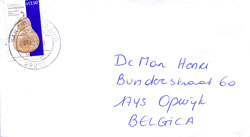 De Man Henri
Bunderstraat 60
1745 Opwijk
BELGICA